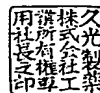 久光製薬
株式会社工
業所有権専
用社長之印